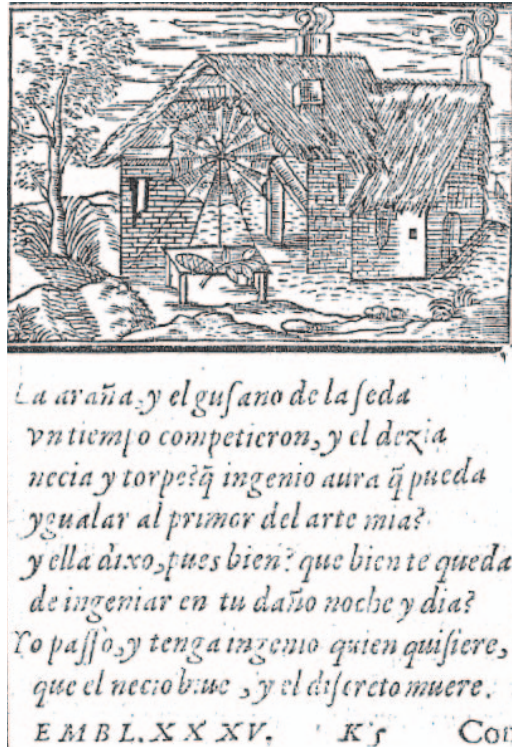 La araña, y el guſano de la ſeda
vn tiempo competieron, y el dezia
necia y torpe? q̄ ingenio aura q̄ pueda
ygualar al primor del arte mia?
y ella dixo, pues bien? que bien te queda
de ingeniar en tu daño noche y dia?
Yo paſſo, y tenga ingenio quien quiſiere,
que el necio biue, y el diſcreto muere.
EMBL. XXXV. K5 Con